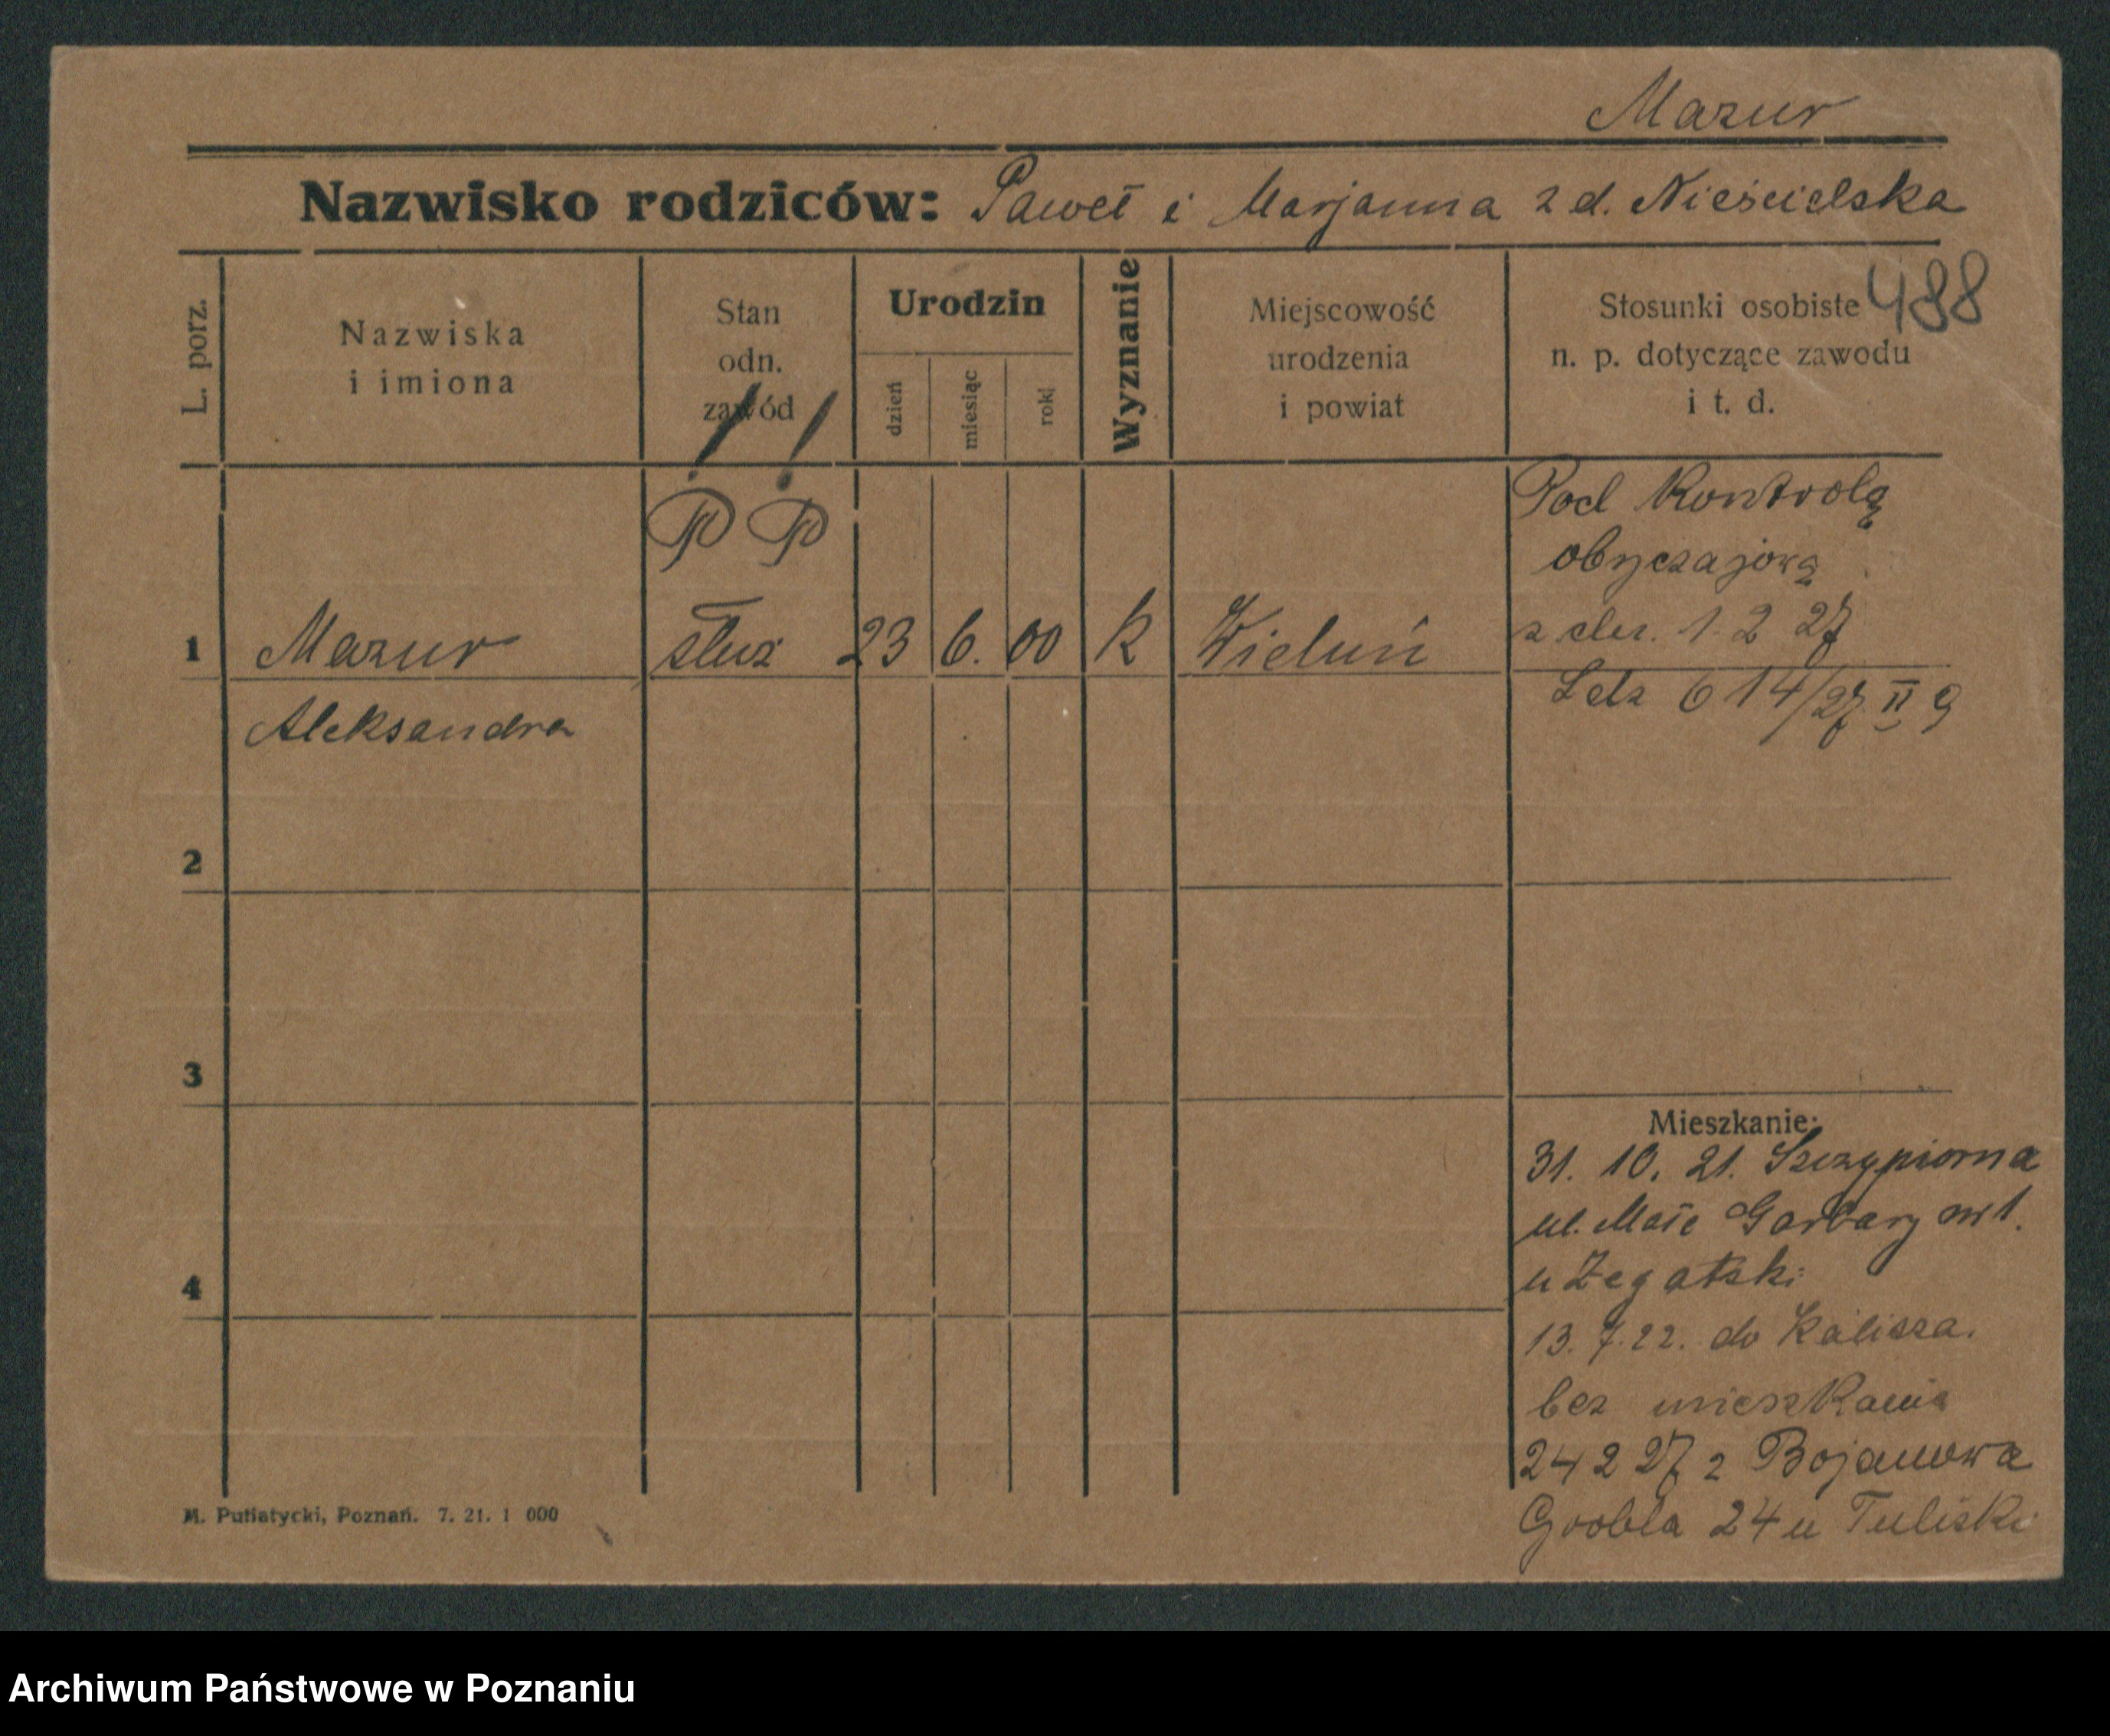 Mazur
Nazwisko rodziców: Paweł i Marjanna z d. Nieścielska
L. porz.
Nazwiska
i imiona
Stan
odn.
zawód
Urodzin
dzień
miesiąc
rok
Wyznanie
Miejscowość
urodzenia
i powiat
Stosunki osobiste
n. p. dotyczące zawodu
i t. d.
488
! !
P P
Pod Kontrolą
obyczajową
z dn. 1. 2 27
1 Mazur służ 23 6. 00 k Wieluń
Aleksandra
Ldz 614/27 II 9
2
3
4
Mieszkanie:
31. 10. 21. Szczypiorna
ul. Małe Garbary nr 1.
u
13. 7. 22. do Kalisza.
bez mieszkania
24 2 27 z Bojanowa
Grobla 24 u Tuliski
M. Putiatycki, Poznań. 7. 21. 1 000
Archiwum Państwowe w Poznaniu